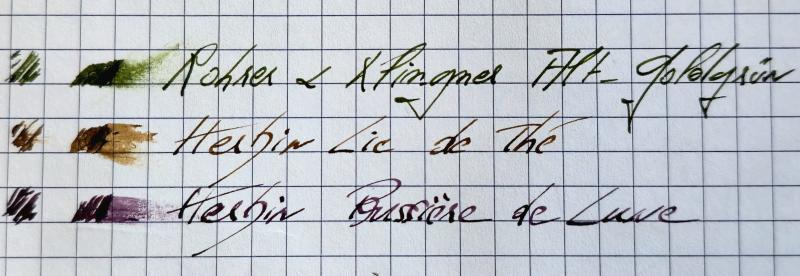 Rohrer & Klingner Alt-Goldgrün
Herbin Lie de Thé
Herbin Poussière de Lune